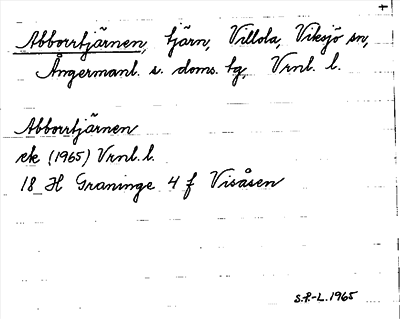 Abborrtjärnen, tjärn, Villola, Viksjö sn,
Ångermanl. s. doms. tg, Vrnl. l.
Abborrtjärnen
ek (1965) Vrnl. l.
18 H Graninge 4 f Visåsen
S.P.-L. 1965